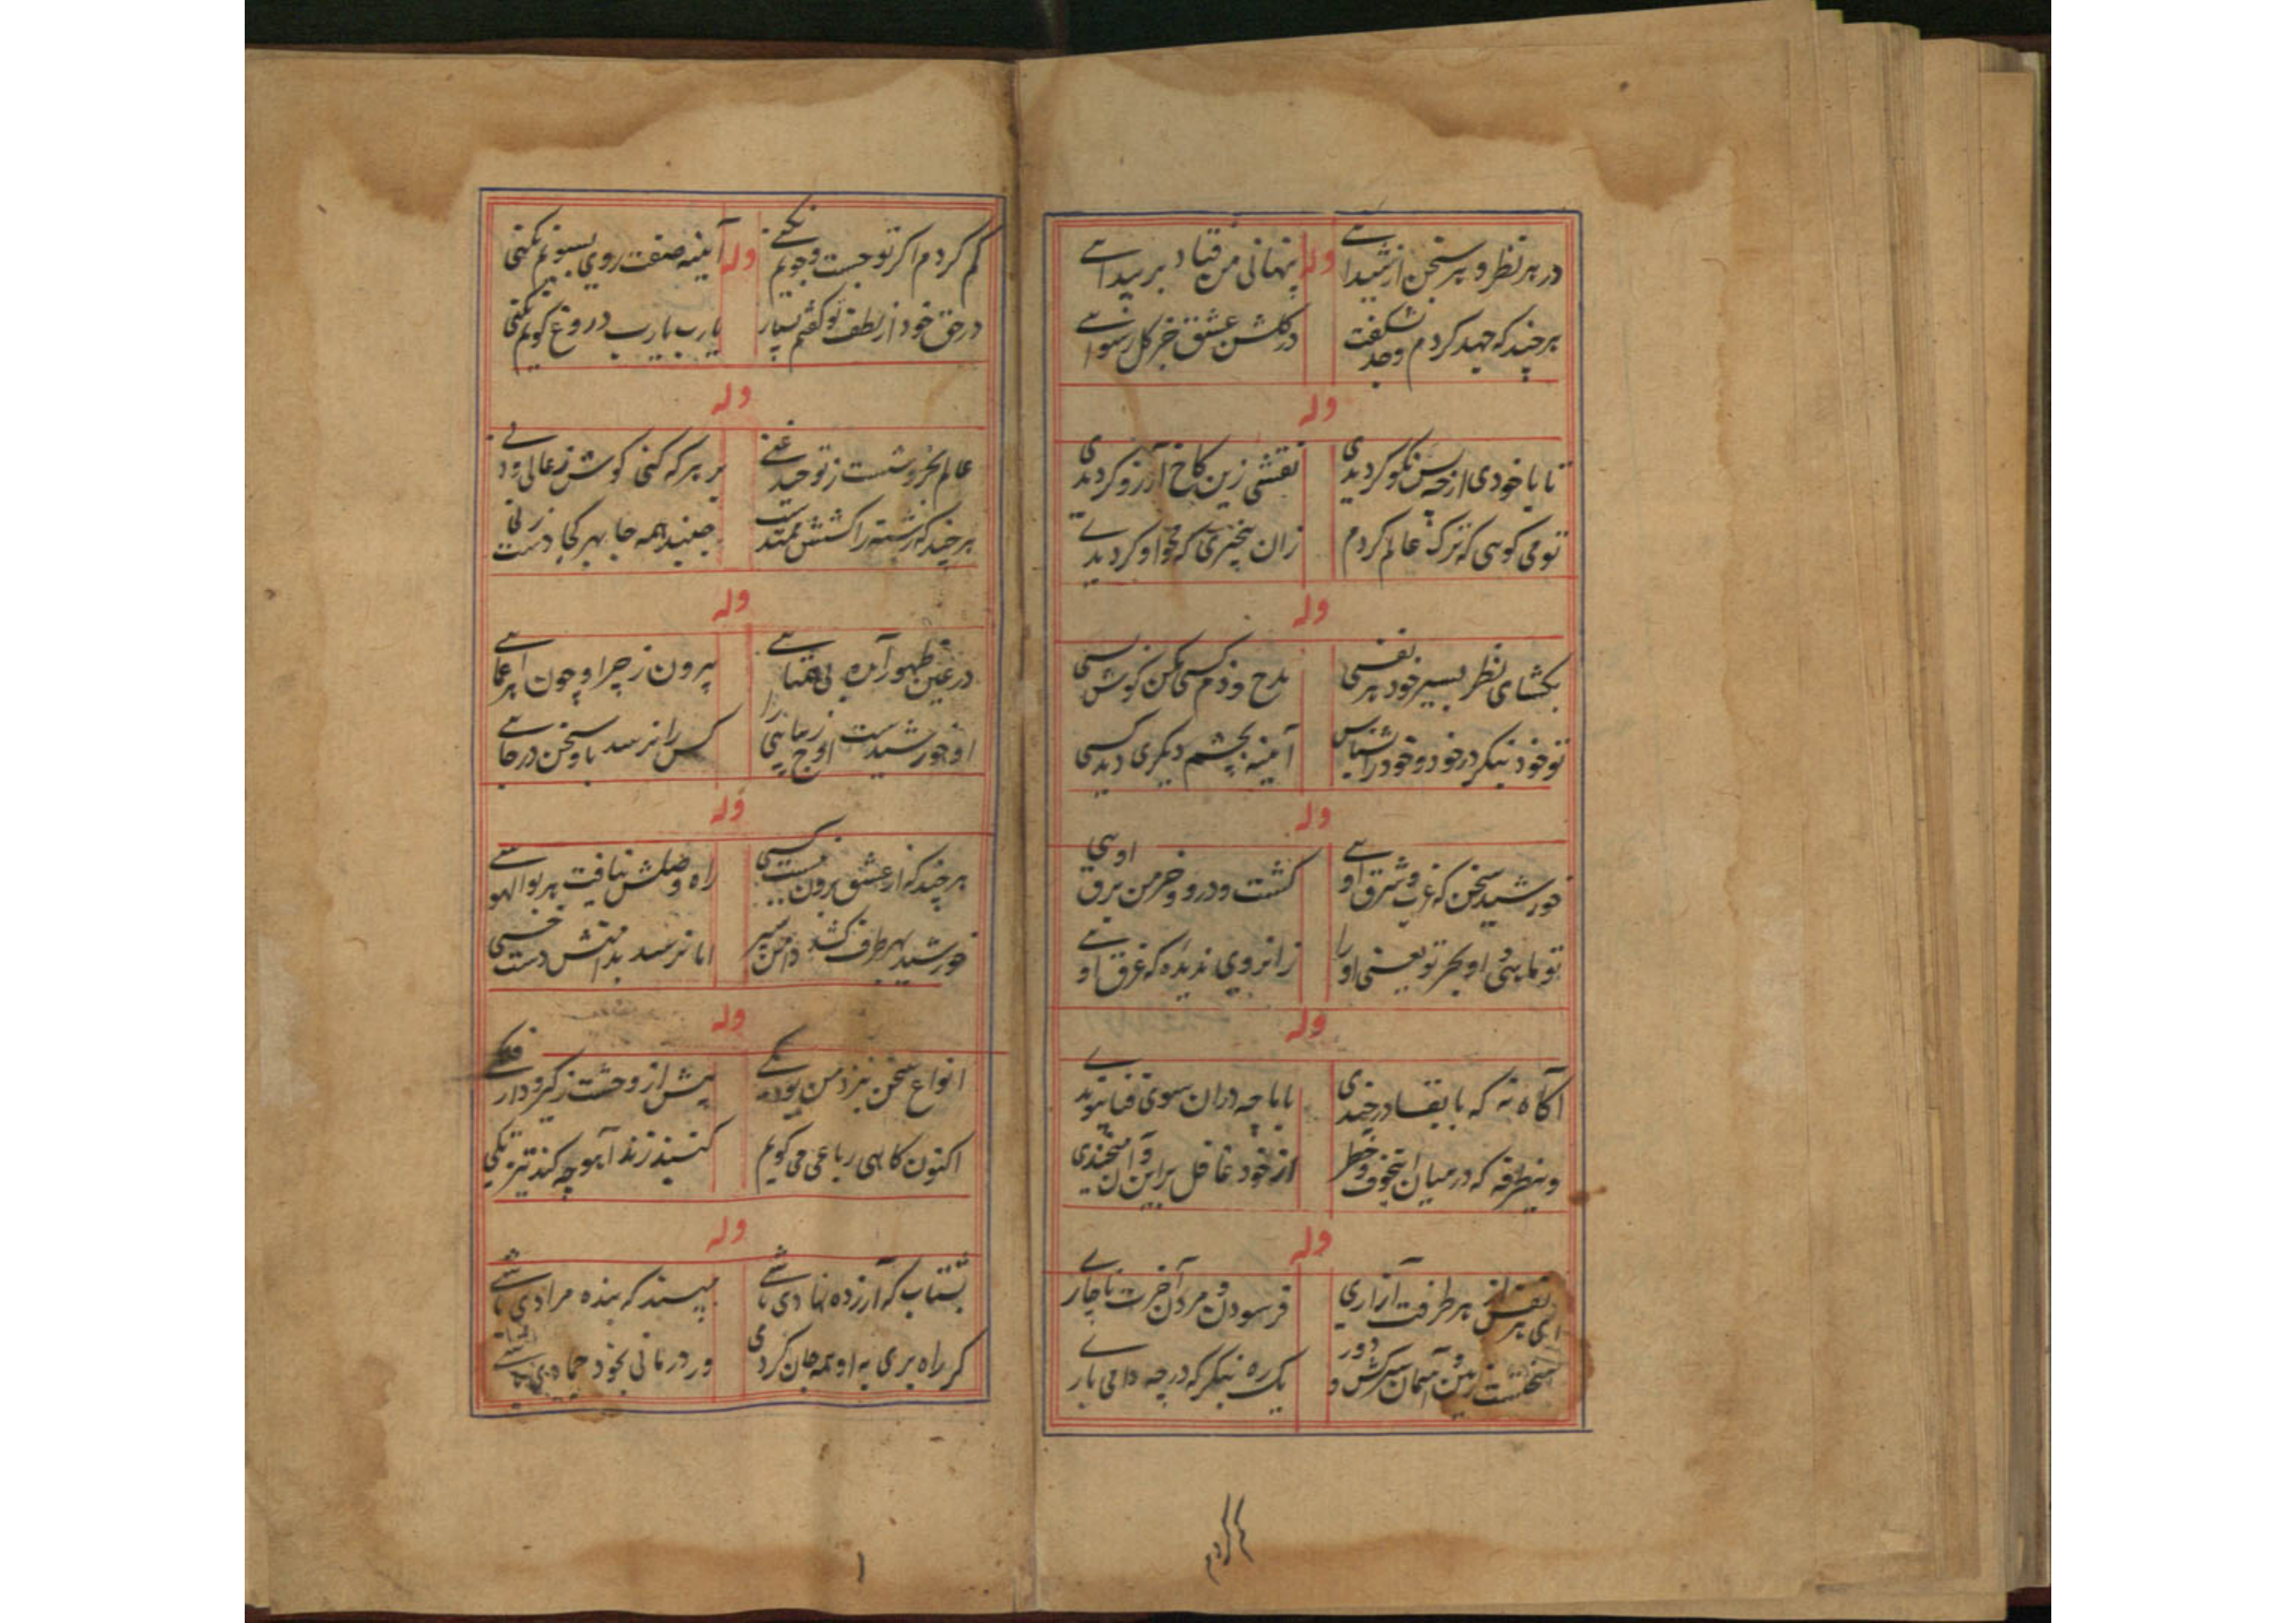 در هر نظر و هر سخن از شیدائے وله پنهانی من فتاد بر پیدائے
هر چند که جهد کردم و جد نشکفت در گلشن عشق جز گل رسوائے
وله
تا با خودی از چه پس نکو گردیدی نقشی زین کاخ آرزو گردیدی
تو می گوئی که ترک عالم کردم زان بیخبری که محو او گردیدے
وله
بگشای نظر بسیر خود هر نفسی مدح و ذم کسی مکن گوش بسی
تو خود بنگر در خود و خود را بشناس آئینه بچشم دیگری دید کسی
وله
خورشید سخن که غرب و شرق اوئے کشت و درو و خرمن و برق اوئی
تو ماهئی و او بحر تو یعنی او را زانروی ندیدهٔ که غرق اوئے
وله
آگاه نهٔ که با بقا در چندی یا با چه در ان سوی فنا پیوندے
وینطرفه که در میان اینخوف و خطر از خود غافل براین و آن میخندی
وله
ای هر نفس از هر طرفت آزاری فرسودن و مردن آخرت ناچارے
سختست زمین و آسمان سرکش و دور یک ره بنگر که در چه دامی بارے
گم کردم
گم کردم اگر تو جست و جویم نکنے وله آئینه صفت روی بسویم نکنی
در حق خود از لطف تو گفتم بسیار یارب یارب دروغ گویم نکنی
وله
عالم بخروشست ز توحید غنے بر هر که کنی گوش ز عالی و دنے
هر چند که رشته را کشش ممتد است جنبد همه جا بهر کجا دست زنی
وله
در عین ظهور آمده بی همتائے بیرون ز چرا و چون و اهر عمائے
او خورشیدست اوج زیبائی را کس را نرسد باو سخن در جائے
وله
هر چند که از عشق برون نیست کسی راه وصلش نیافت هر بوالهوسے
خورشید بهر طرف کشد دامن سیر اما نرسد بدامنش دست خسی
وله
انواع سخن نزد من بود یکے پیش از وحشت ز گیر و دار فلکے
اکنون گاهی رباعی می گویم گنبد زند آهو چه کند تیز تکی
وله
بشتاب که آرزده نهادی باشے مپسند که بنده مرادی باشے
گر راه بری به او همه جان گردی ور درمانی بخود جمادی باشے